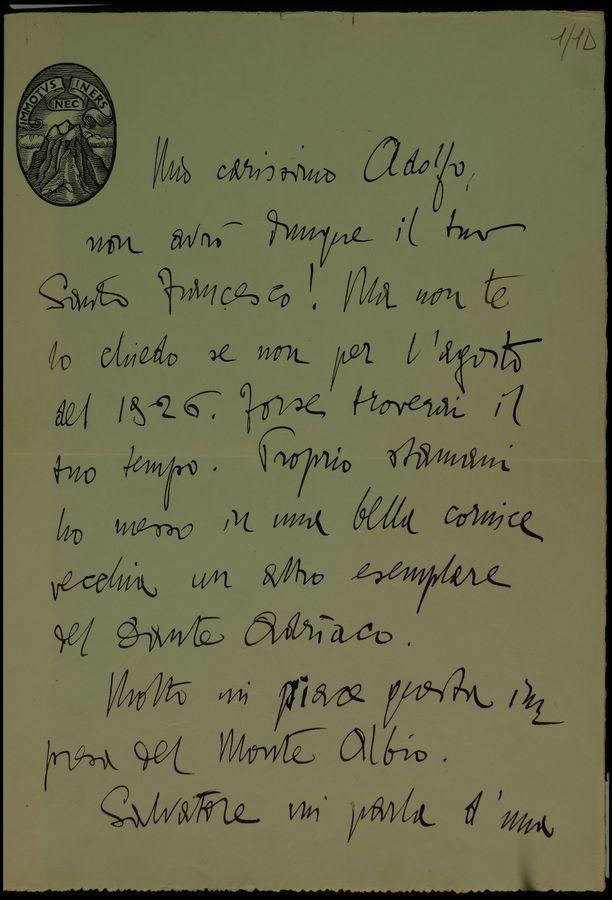 1/1D
IMMOTVS NEC INERS
Mio carissimo Adolfo,
non avrò dunque il tuo
Santo Francesco! Ma non te
lo chiedo se non per l'agosto
del 1926. Forse troverai il
tuo tempo. Proprio stamani
ho messo in una bella cornice
vecchia un altro esemplare
del Dante Adriaco.
Molto mi piace questa im
presa del Monte Albio.
Salvatore mi parla d'una